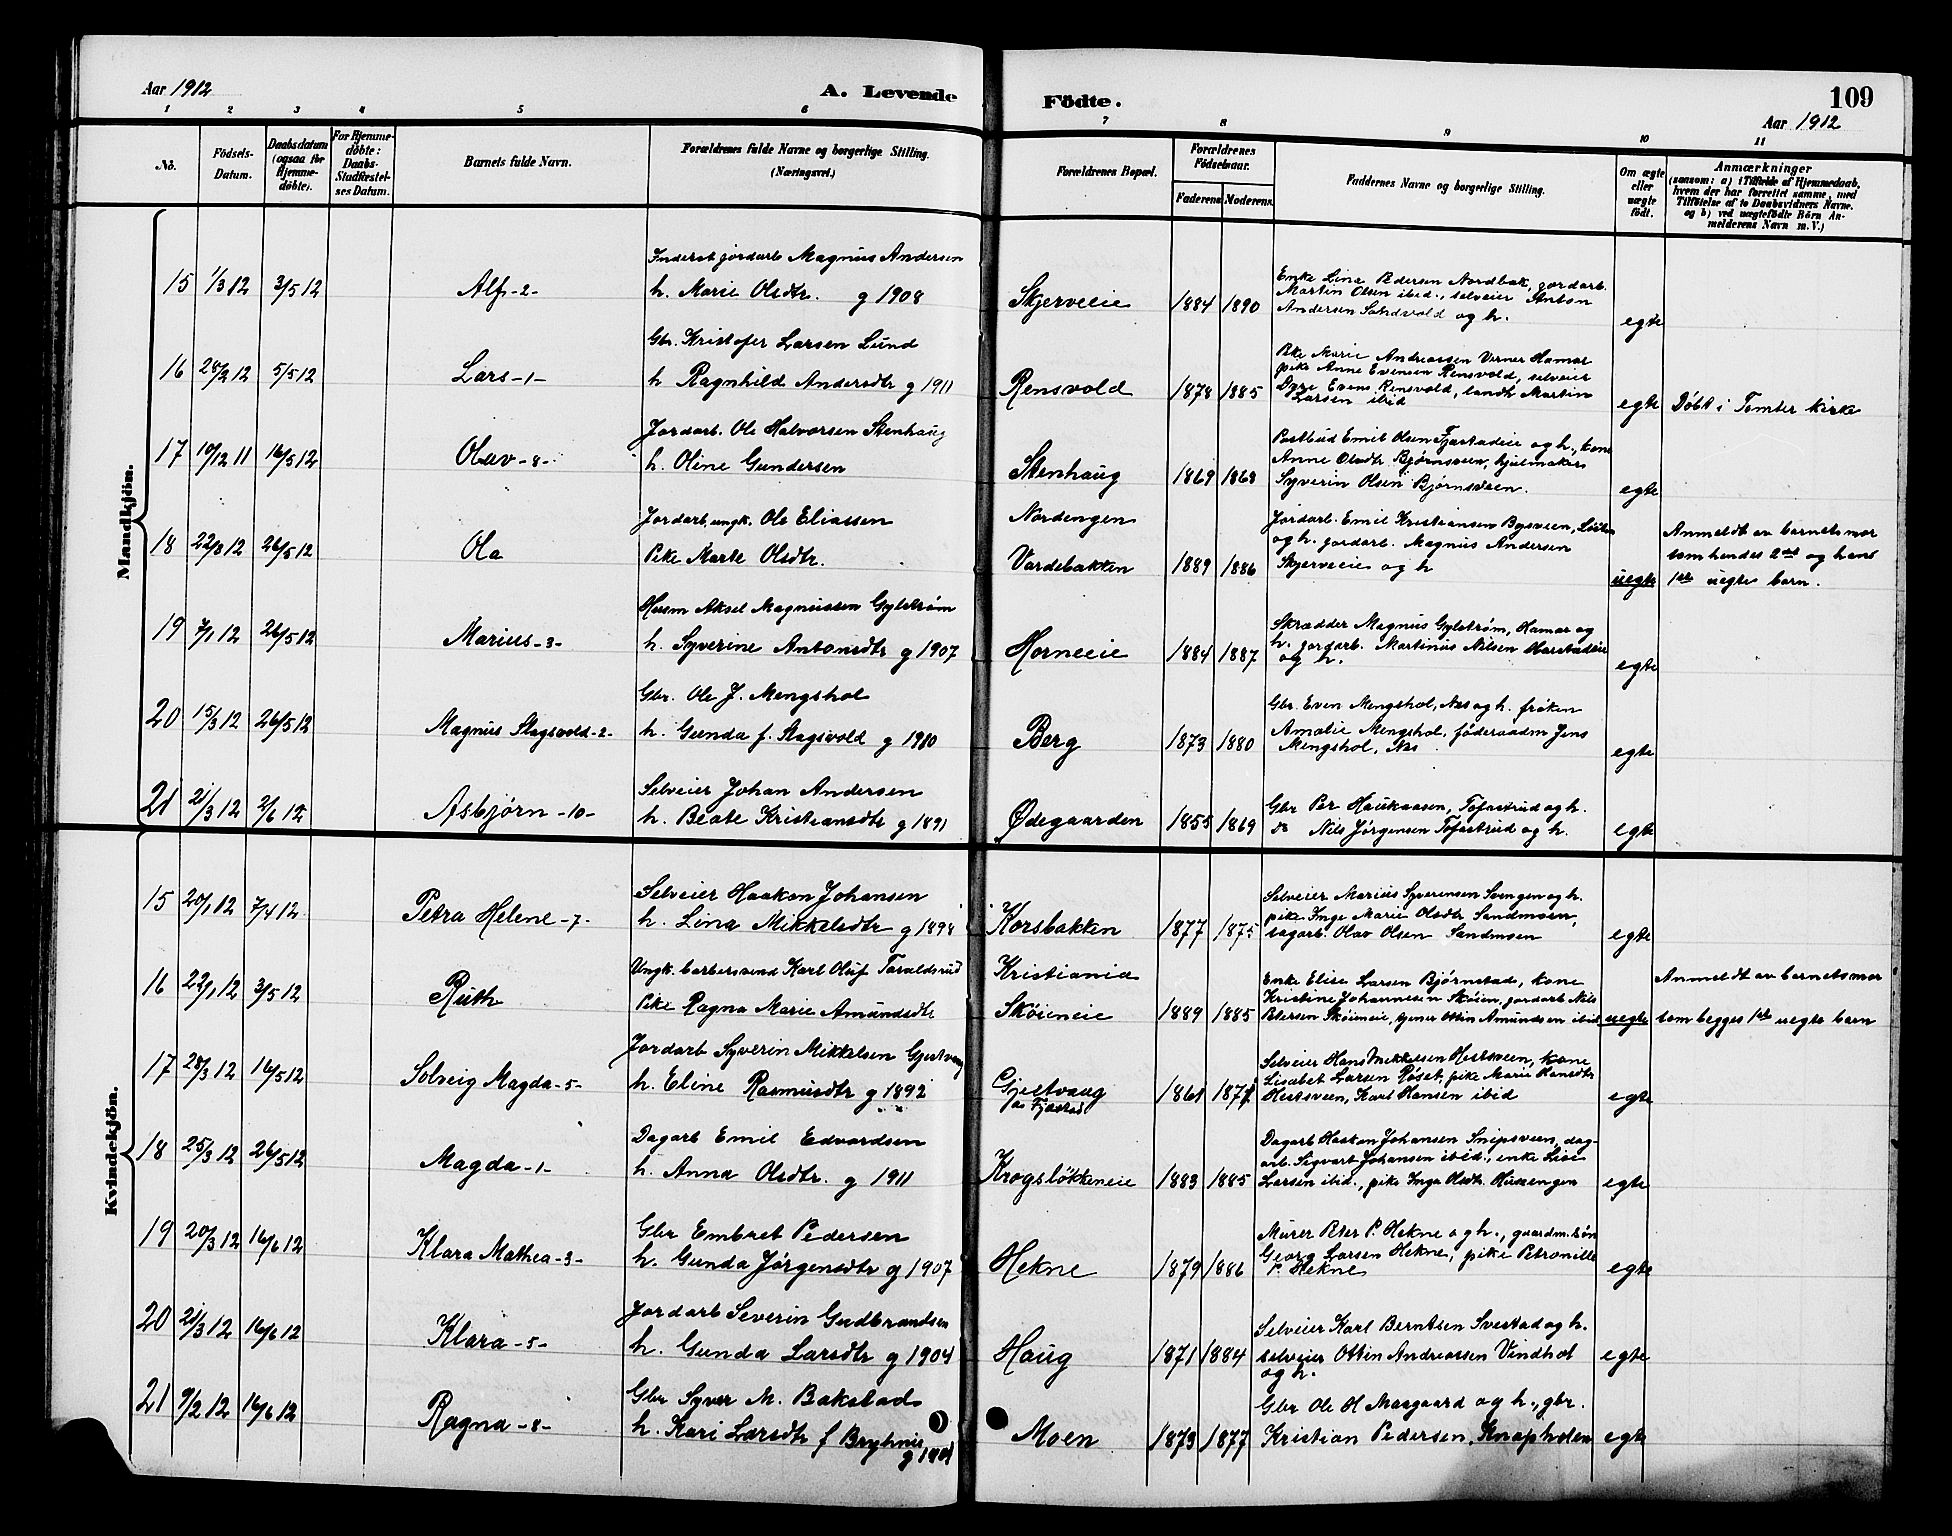 Aar 1912
A. Levende
Födte.
109
Aar 1912
1 2 3 4 5 6 7 8 9 10 11
No.
Födsels-Datum.
Daabsdatum (ogsaa for Hjemmedöbte).
For Hjemmedöbte: Daabs-Stadfæstelses Datum.
Barnets fulde Navn.
Forældrenes fulde Navne og borgerlige Stilling. (Næringsvei.)
Forældrenes Bopæl.
Forældrenes Födselsaar.
Faderens Moderens
Faddernes Navne og borgerlige Stilling.
Om ægte eller uægte födt.
Anmærkninger
(saasom: a) i Tilfælde af Hjemmedaab,
hvem der har forrettet samme, med
Tilföielse af to Daabsvidners Navne.
og b) ved uægtefödte Börn An-
melderens Navn m. V.)
Mandkjön.
15 1/3 12 3/5 12 Alf -2-
Inderst jordarb Magnus Andersen
h. Marie Olsdtr. g 1908
Skjerveeie 1884 1890
Enke Lina Pedersen Nordbak, jordarb.
Martin Olsen ibid., selveier Anton
Andersen Sandvold og h.
egte
16 28/2 12 5/5 12 Lars -1-
Gbr. Kristofer Larsen Lund
h Ragnhild Andersdtr g 1911
Rensvold 1878 1885
Pike Marie Andreassen Verner Hamar
pike Anne Evensen Rensvold, selveier
Dyre Evens Rensvold, landh Martin
Larsen ibid
egte
Døbt i Tomter kirke
17 10/12 11 16/5 12 Olav -8-
Jordarb. Ole Halvorsen Stenhaug
h. Oline Gundersen
Stenhaug 1869 1868
Postbud Emil Olsen Fjæstadeie og h., kone
Anne Olsdtr Bjørnsveen, hjulmaker
Syverin Olsen Bjørnsveen.
egte
18 22/3 12 26/5 12 Ola
Jordarb. ungk. Ole Eliassen
Pike Marte Olsdtr.
Nordengen
Vardebakken 1889 1886
Jordarb. Emil Kristiansen Bysveen, Løiten
og h. jordarb. Magnus Andersen
Skjerveeie og h
uegte
Anmeldt av barnets mor
som hendes 2det og hans
1ste uegte barn.
19 7/1 12 26/5 12 Marius -3-
Husm Aksel Magnussen Gylstrøm
h. Syverine Antonsdtr g 1907
Horneeie 1884 1887
Skrædder Magnus Gylstrøm, Hamar og
h. jordarb. Martinus Nilsen Harstadeie
og h.
egte
20 15/3 12 26/5 12 Magnus Slagsvold -2-
Gbr. Ole J. Mengshol
h. Gunda f. Slagsvold g 1910
Berg 1873 1880
Gbr. Even Mengshol, Næs og h. frøken
Amalie Mengshol, føderaadm Jens
Mengshol, Næs
egte
21 21/3 12 2/6 12 Asbjørn -10-
Selveier Johan Andersen
h. Beate Kristiansdtr g 1891
Ødegaarden 1855 1869
Gbr Per Haukaasen, Tofastrud og h.
do Nils Jørgensen Tofastrud og h.
egte
Kvindekjön.
15 20/1 12 7/4 12 Petra Helene -7-
Selveier Haakon Johansen
h. Lina Mikkelsdtr g 1898
Korsbakken 1877 1875
Selveier Marius Syversen Svengen og h.
pike Inge Marie Olsdtr Sandmoen,
sagarb. Olav Olsen Sandmoen
egte
16 22/1 12 3/5 12 Ruth
Ungk. barbersvend Karl Oluf Taraldsrud
Pike Ragna Marie Amundsdtr
Kristiania
Skøieneie 1889 1885
Enke Elise Larsen Bjørnstad, kone
Kristine Johannesen Skøien, jordarb Nils
Petersen Skøieneie, tjener Ottin Amundsen ibid
uegte
Anmeldt av barnets mor
som begges 1ste uegte barn
17 28/3 12 16/5 12 Solveig Magda -5-
Jordarb Syverin Mikkelsen Gjestvang
h. Eline Rasmusdtr g 1892
Gjestvang
av Fjæstad 1861 1877
Selveier Hans Mikkelsen Hestsveen, kone
Lisabet Larsen Røset, pike Marie Hansdtr
Hestsveen, Karl Hansen ibid
egte
18 25/3 12 26/5 12 Magda -1-
Dagarb Emil Edvardsen
h. Anna Olsdtr. g 1911
Krogsløkkeneie 1883 1885
Dagarb Haakon Johansen Snipsveen, dag-
arb. Sigvart Johansen ibid., enke Lise
Larsen ibid., pike Inga Olsdtr. Husengen
egte
19 20/3 12 16/6 12 Klara Mathea -3-
Gbr Embret Pedersen
h. Gunda Jørgensdtr g 1907
Hekne 1879 1886
Murer Peter P. Hekne og h., gaardm.søn
Georg Larsen Hekne, pike Petronille
P. Hekne
egte
20 21/3 12 16/6 12 Klara -5-
Jordarb Severin Gudbrandsen
h. Gunda Larsdtr g 1904
Haug 1871 1884
Selveier Karl Berntsen Svestad og h.
selveier Ottin Andreassen Vindhol
og h.
egte
21 9/2 12 16/6 12 Ragna -8-
Gbr Syver M. Bakstad
h. Kari Larsdtr f Bryhni
g 1901
Moen 1873 1877
Gbr Ole H Aasgaard og h., gbr.
Kristian Pedersen, Knapholen
egte